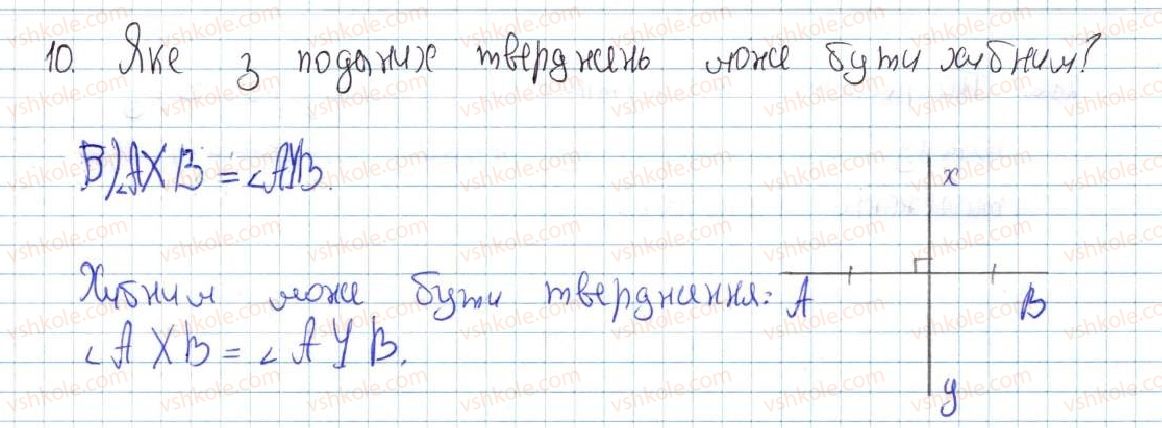 10. Яке з поданих тверджень може бути хибним?
В) ∠AXB = ∠AYB.
x
Хибним може бути твердження:
A
B
∠AXB = ∠AYB.
y